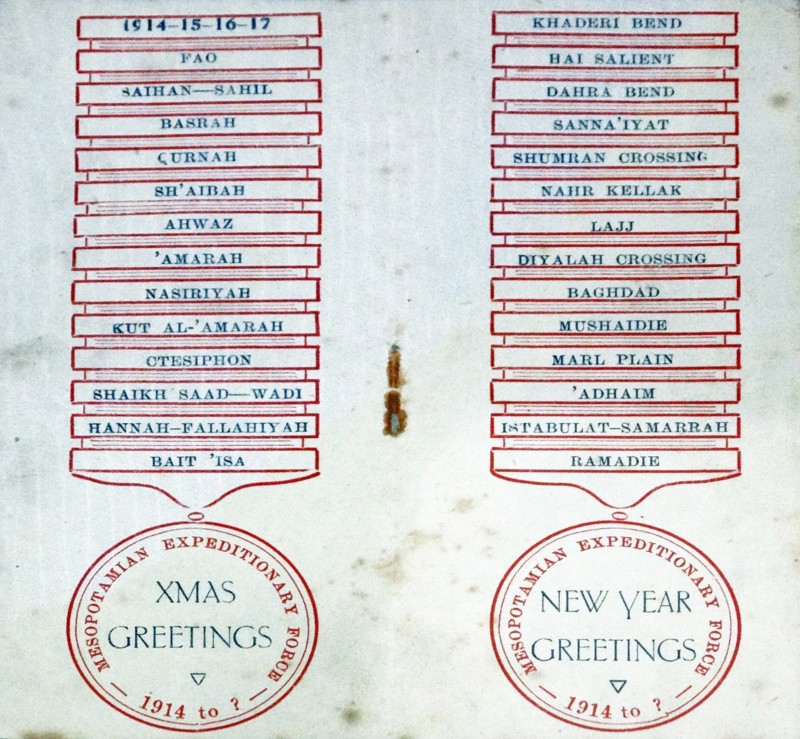 1914-15-16-17
FAO
SAIHAN—SAHIL
BASRAH
QURNAH
SH'AIBAH
AHWAZ
'AMARAH
NASIRIYAH
KUT AL-'AMARAH
CTESIPHON
SHAIKH SAAD—WADI
HANNAH-FALLAHIYAH
BAIT 'ISA
MESOPOTAMIAN EXPEDITIONARY FORCE
XMAS
GREETINGS
— 1914 to ? —
KHADERI BEND
HAI SALIENT
DAHRA BEND
SANNA'IYAT
SHUMRAN CROSSING
NAHR KELLAK
LAJJ
DIYALAH CROSSING
BAGHDAD
MUSHAIDIE
MARL PLAIN
'ADHAIM
ISTABULAT-SAMARRAH
RAMADIE
MESOPOTAMIAN EXPEDITIONARY FORCE
NEW YEAR
GREETINGS
— 1914 to ? —